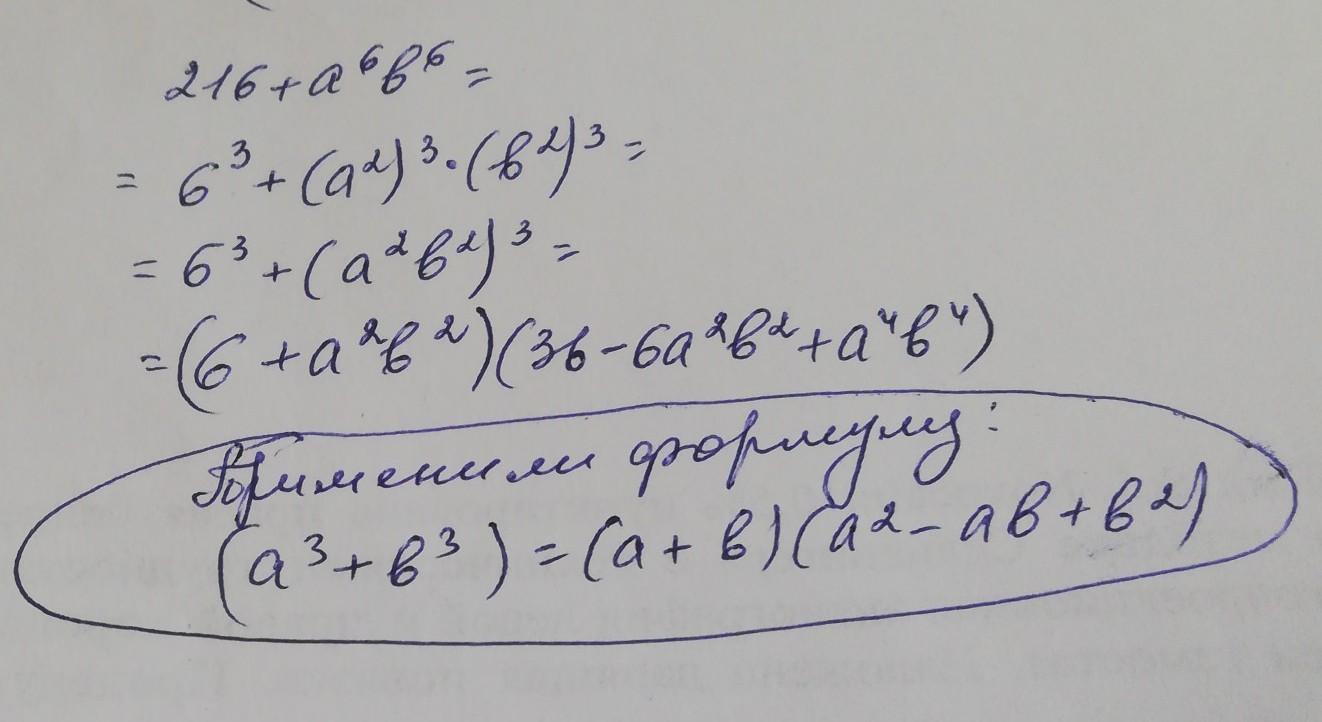 216+a⁶b⁶=
= 6³+(a²)³·(b²)³=
= 6³+(a²b²)³=
=(6+a²b²)(36-6a²b²+a⁴b⁴)
Применили формулу:
(a³+b³)=(a+b)(a²-ab+b²)